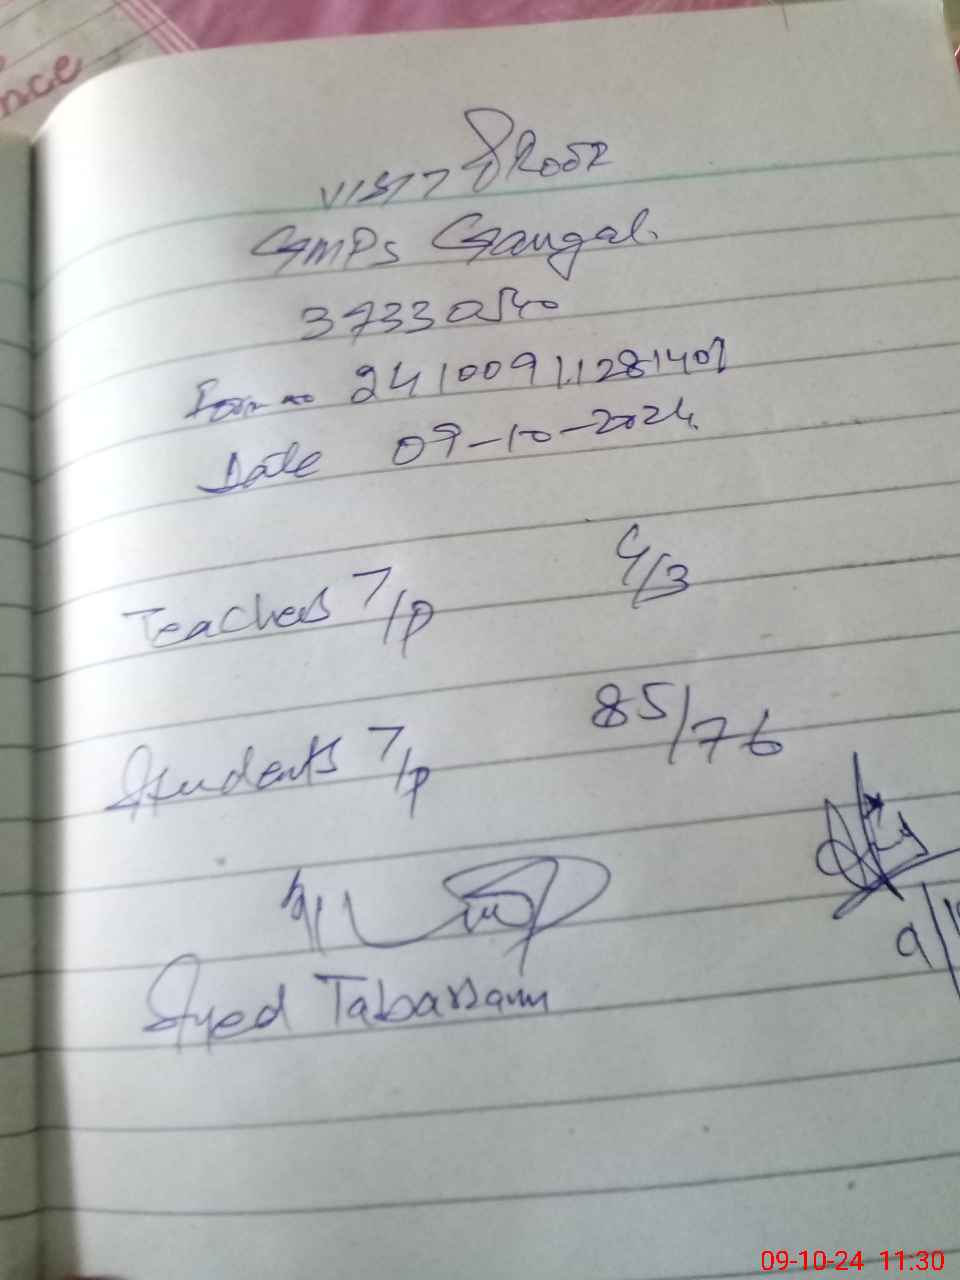 nce
VISIT PROOF
GMPS Gangal.
37330540
Form no 24100911281407
Date 09-10-2024
Teachers T/P 4/3
Students T/P 85/76
Syed Tabassam
9/1
09-10-24 11:30